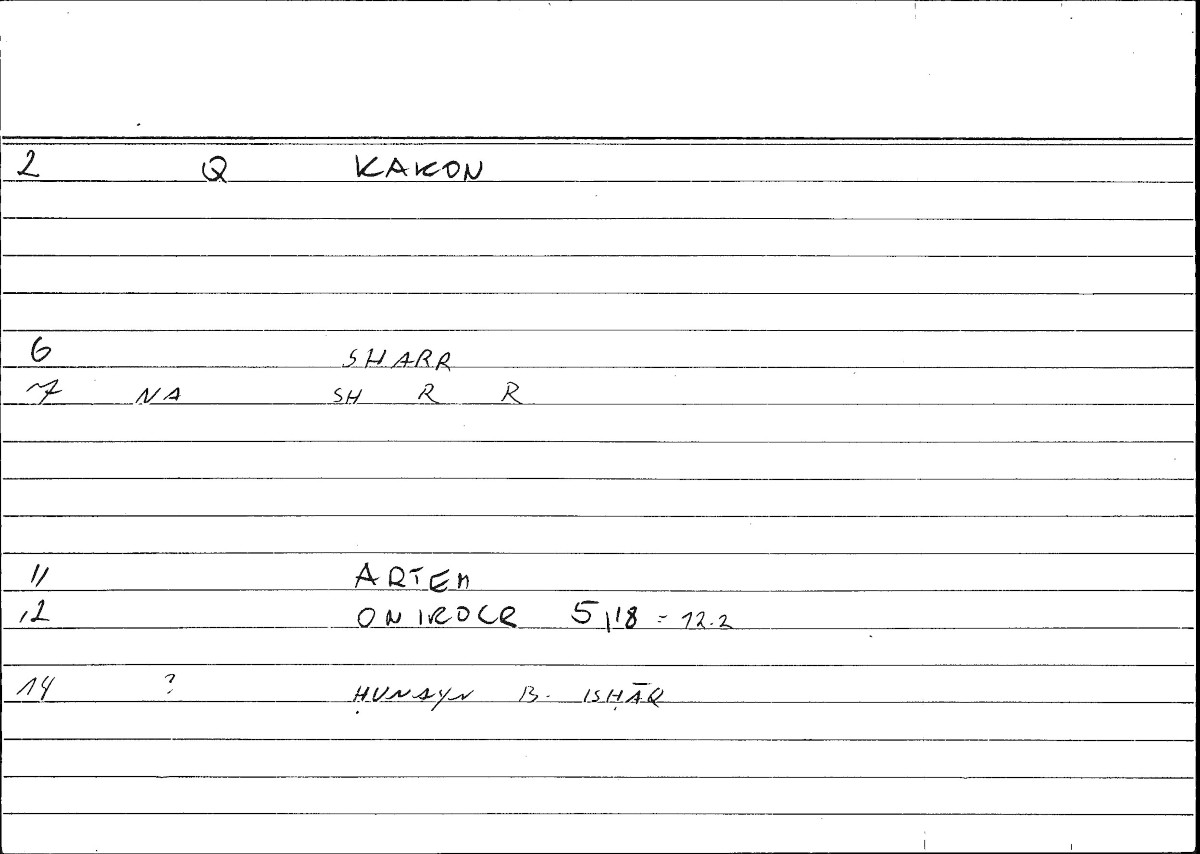 2 Q KAKON
6 SHARR
7 NA SH R R
11 ARTEM
12 ONIROCR 5,18 = 12.2
14 ? ḤUNAYN B. ISḤĀQ